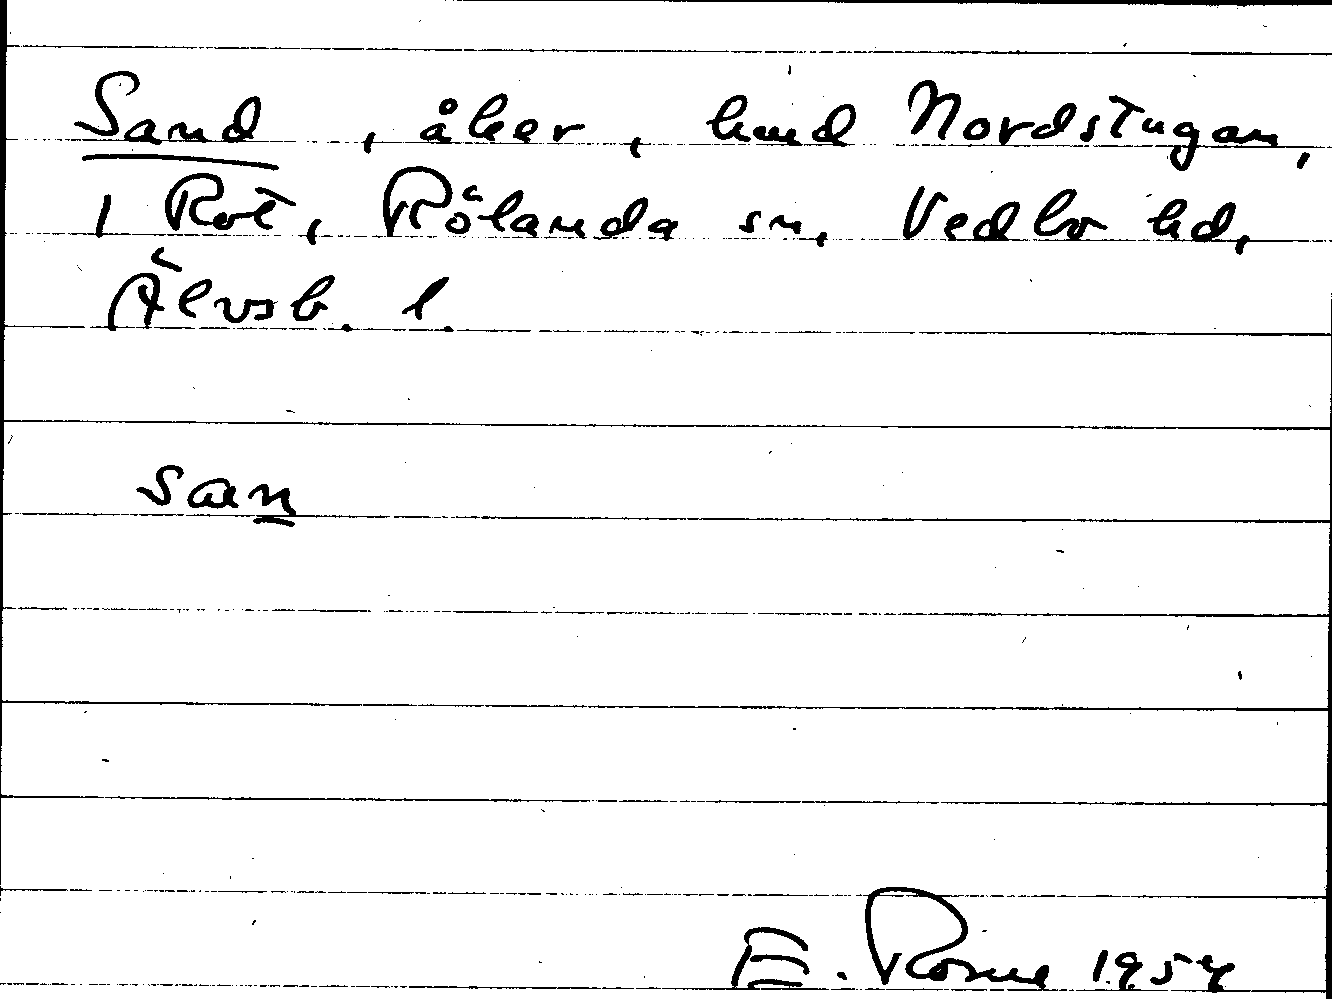 Sand, åker, hmd Nordstugan,
1 Rot, Rölanda sn, Vedbo hd,
Älvsb. l.
san
E. 1954